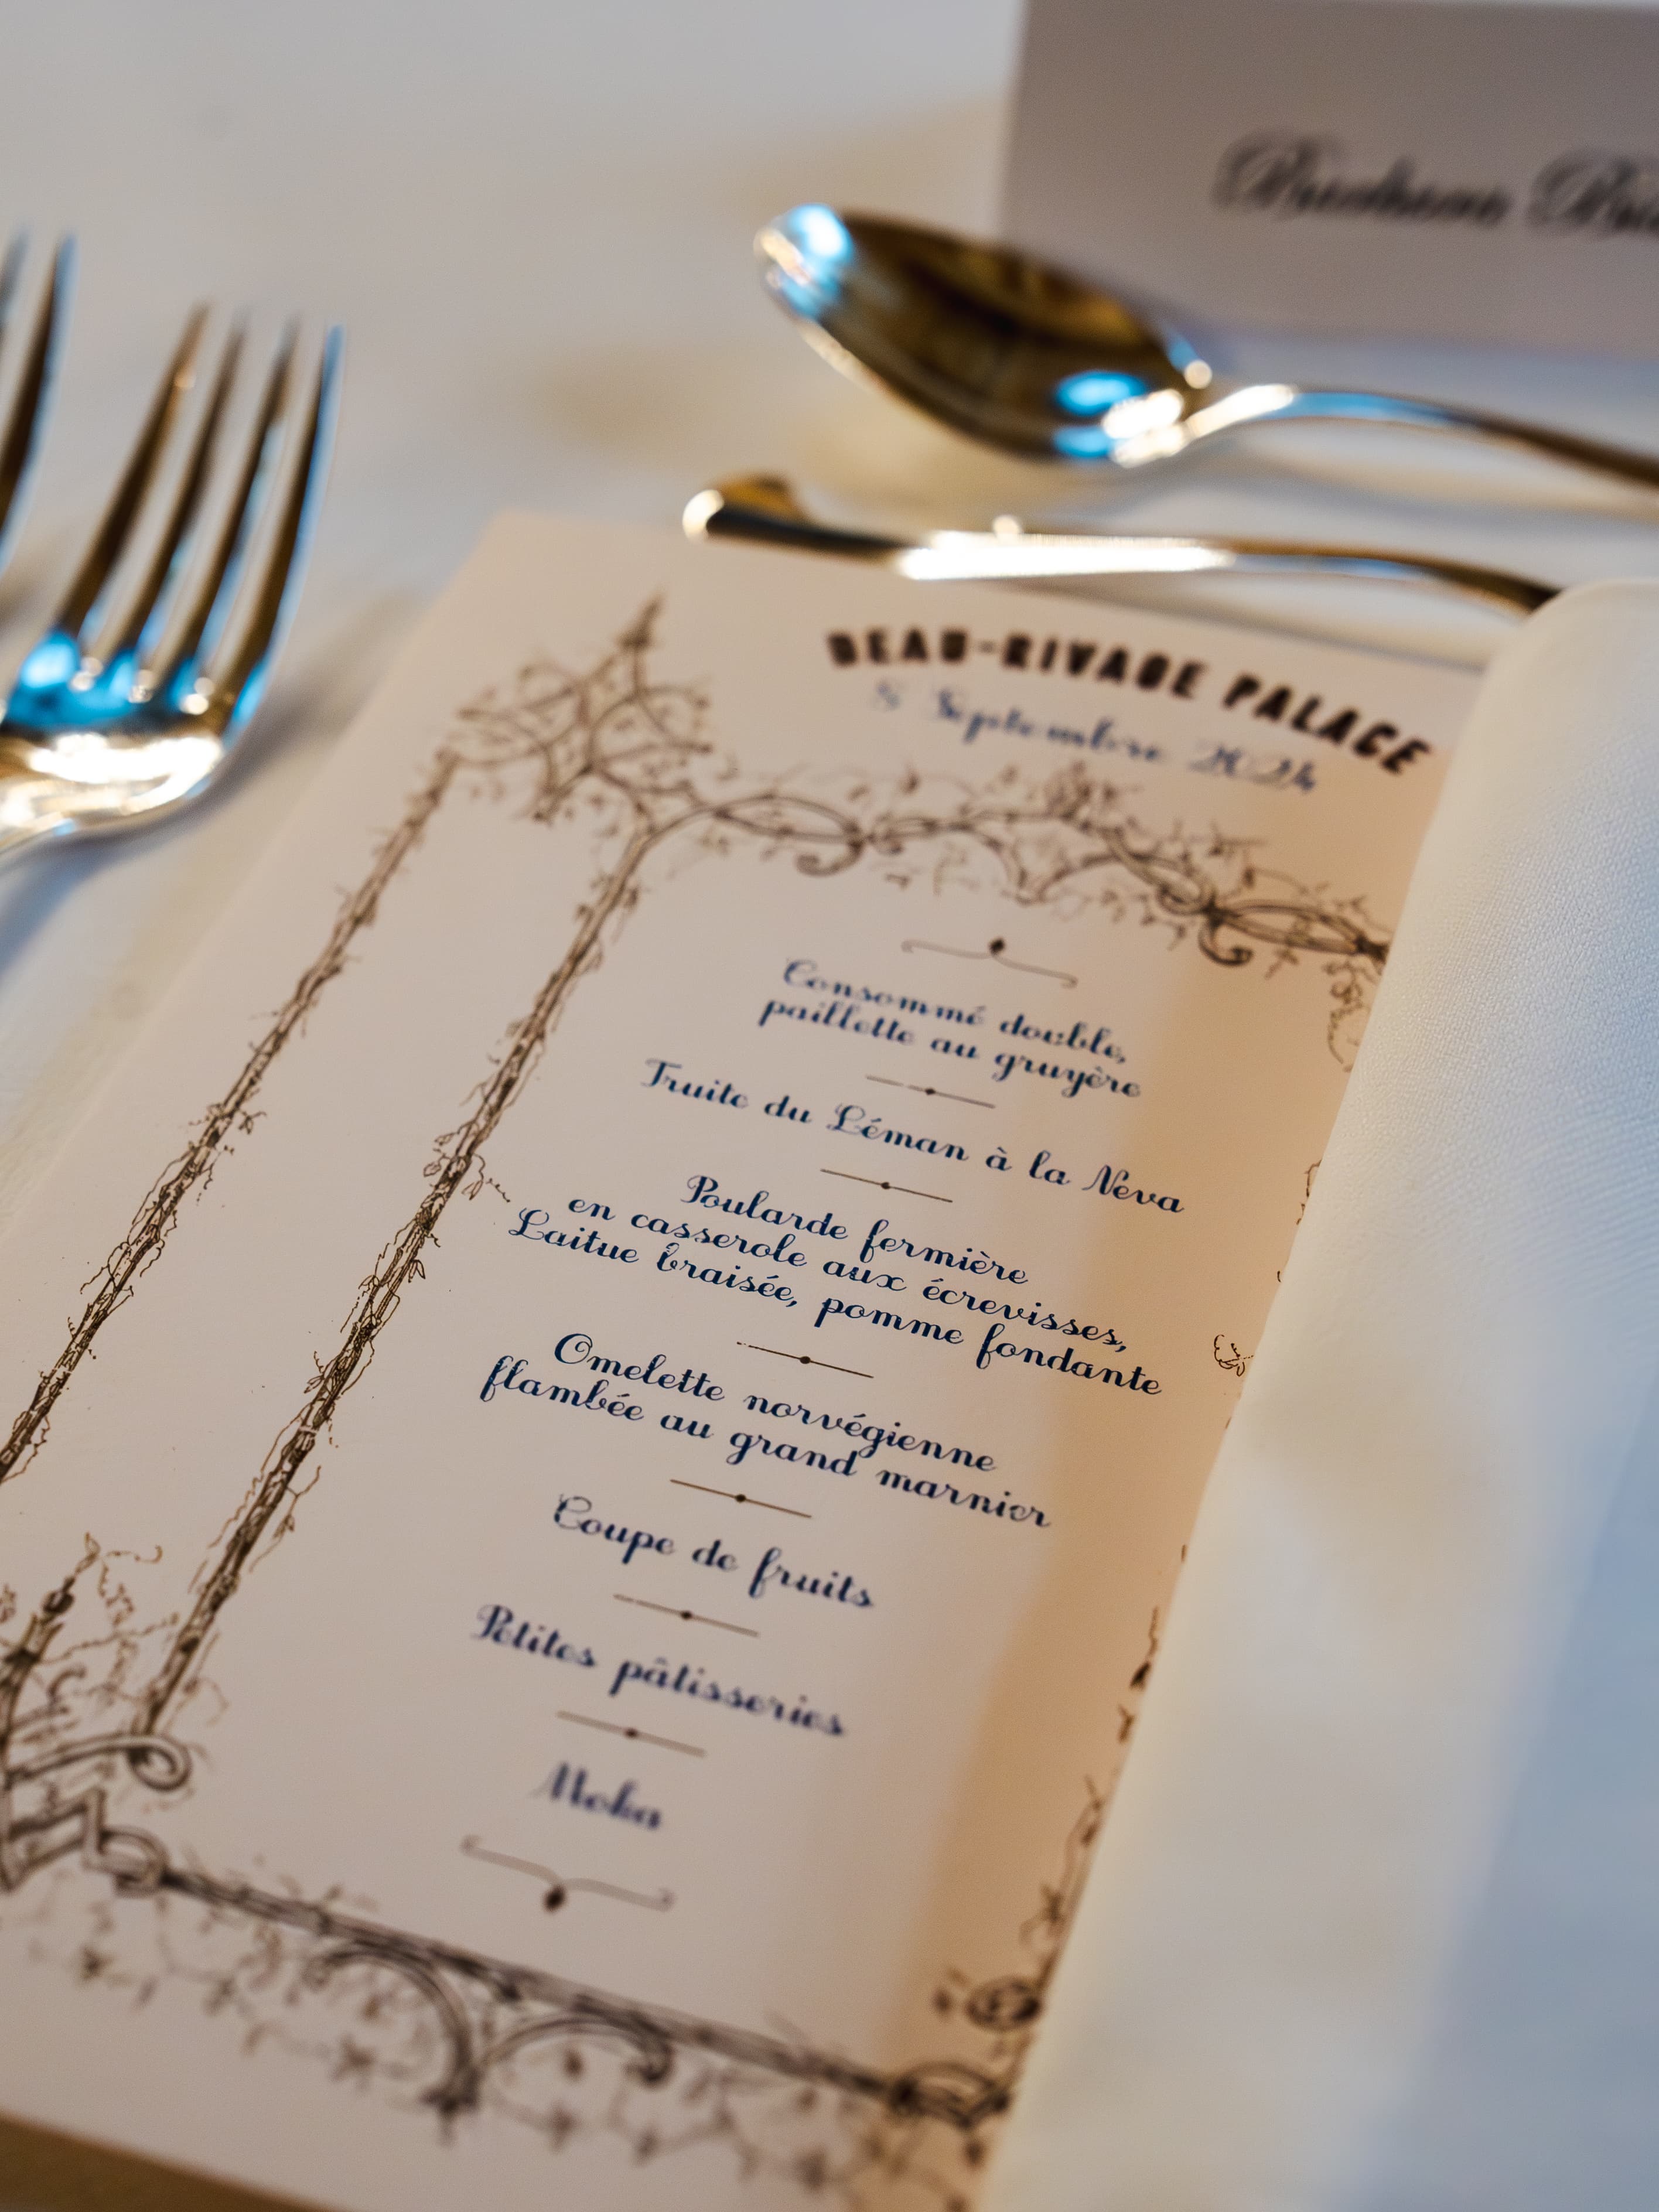 BEAU-RIVAGE PALACE
8 Septembre 2024
Consommé double,
paillette au gruyère
Truite du Léman à la Néva
Poularde fermière
en casserole aux écrevisses,
Laitue braisée, pomme fondante
Omelette norvégienne
flambée au grand marnier
Coupe de fruits
Petites pâtisseries
Moka